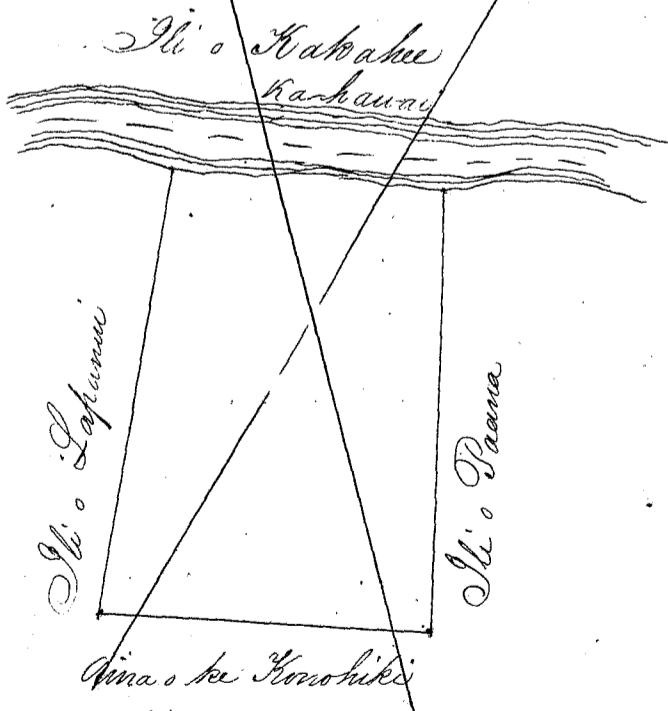 Ili o Kakahee
Kahawai
Ili o Lapanui
Ili o Paana
Aina o ke Konohiki